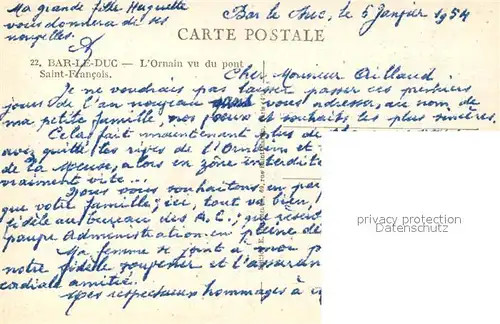 Ma grande fille Huguette
vous donnera de ses
nouvelles.
Bar le Duc, le 5 Janvier 1954
CARTE POSTALE
22. BAR-LE-DUC — L'Ornain vu du pont
Saint-François.
Cher Monsieur Aillaud.
Je ne voudrais pas laisser passer ces premiers
jours de l'an nouveau sans vous adresser, au nom de
ma petite famille, nos vœux et souhaits les plus sincères.
Cela fait maintenant plus de
avez quitté les rives de l'Ornain et
de la Meuse, alors en zône interdite
vraiment vite...
Nous vous souhaitons en
que votre famille; ici, tout va bien,
fidèle au bureau des A.C.,
pauvre Administration en pleine
Ma femme se joint à moi
notre fidèle souvenir et l'assurance
cordiale amitié.
Mes respectueux hommages à
privacy protection
DarkstaCards.com